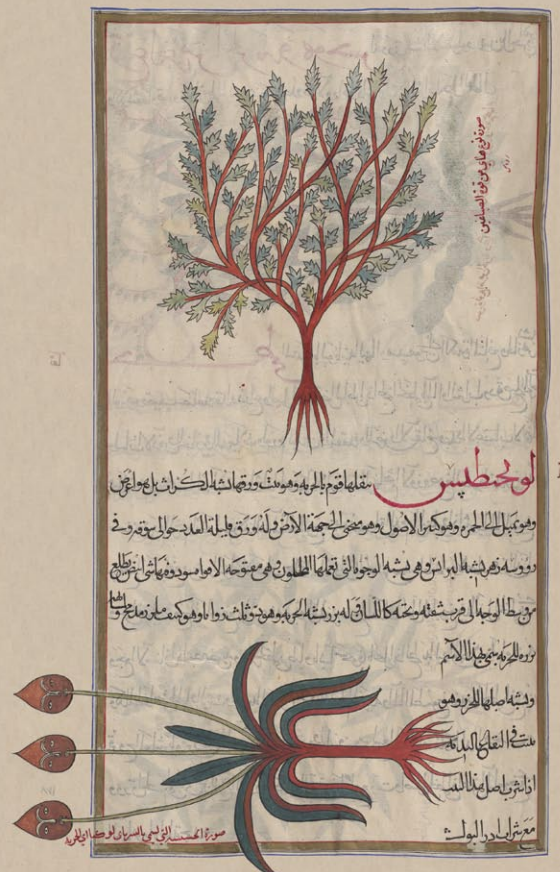 صورة نوع ثاني من قوة الصباغين
لونخيطس ينقلها قوم بالحربة وهو نبت ورقها يشبه الكراث بل هو اعرض
وهو يميل الى الحمرة وهو كثير الاصول وهو منحني الى جهة الارض وله ورق قليلة العدد حوالى سوقه وفي
رؤوسه زهر يشبه البرانس وهي يشبه الوجوه التي تعملها وهي مفتوحة الافواه سود وفيها شي ابيض يطلع
من وسط الوجه الى قرب شفته وتحته كاللسان له بزر يشبه الحربة وهو ذو ثلث زوايا وهو كثيف ملزز
بزره للحربة سمي بهذا الاسم
ويشبه اصلها للجزر وهو
ينبت في البقاع الندية
اذا شرب اصل هذا النبت
مع شراب ادر البول
صورة الحشيشة التي تسمى بالسرياني اي الحربة